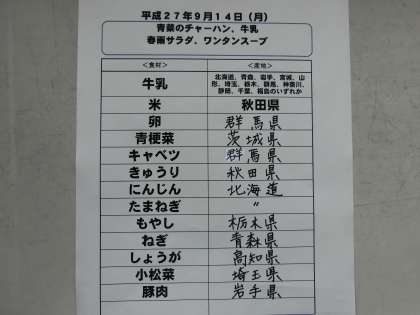 平成27年9月14日（月）
青菜のチャーハン、牛乳
春雨サラダ、ワンタンスープ
＜食材＞ ＜産地＞
牛乳 北海道、青森、岩手、宮城、山
形、埼玉、栃木、群馬、神奈川、
静岡、千葉、福島のいずれか
米 秋田県
卵 群馬県
青梗菜 茨城県
キャベツ 群馬県
きゅうり 秋田県
にんじん 北海道
たまねぎ 〃
もやし 栃木県
ねぎ 青森県
しょうが 高知県
小松菜 埼玉県
豚肉 岩手県